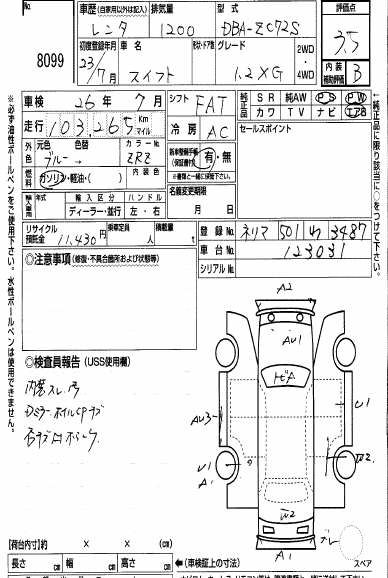 No.
8099
車歴 (自家用以外は記入) 排気量 型式
レンタ 1200 DBA-ZC72S
初度登録年月 車名 形状・ドア数 グレード 2WD・4WD
23/7月 スイフト 1.2XG
評価点
3.5
内装補助評価 B
車検 26年 7月
走行 103,265 Km マイル
外色 元色 色替 カラーNo.
ブルー→ ZRZ
燃料 ガソリン・軽油・( ) 内装色
輸入車用 輸入区分 ハンドル
ディーラー・並行 左・右
リサイクル預託金 11,430円 乗車定員 人 積載量 t
シフト FAT
冷房 AC
新車整備手帳(保証書付) 有・無
※書類と一緒に後渡し。
名義変更期限
月 日
純正品 SR 純AW PS PW
カワ TV ナビ エアB
セールスポイント
登録No. ネリマ 501 わ 3487
車台No. 123031
シリアルNo.
◎注意事項 (修復・不具合箇所および状態等)
◎検査員報告 (USS使用欄)
内装スレ汚
※必ず油性ボールペンをご使用下さい。水性ボールペンは使用できません。
←純正品に限り○をつけて下さい。
A2
AU1
AU3
U1
U1
A1
W2
W2
A1
スペア
【荷台内寸】約 × × (cm)
長さ cm 幅 cm 高さ cm ←(車検証上の寸法)